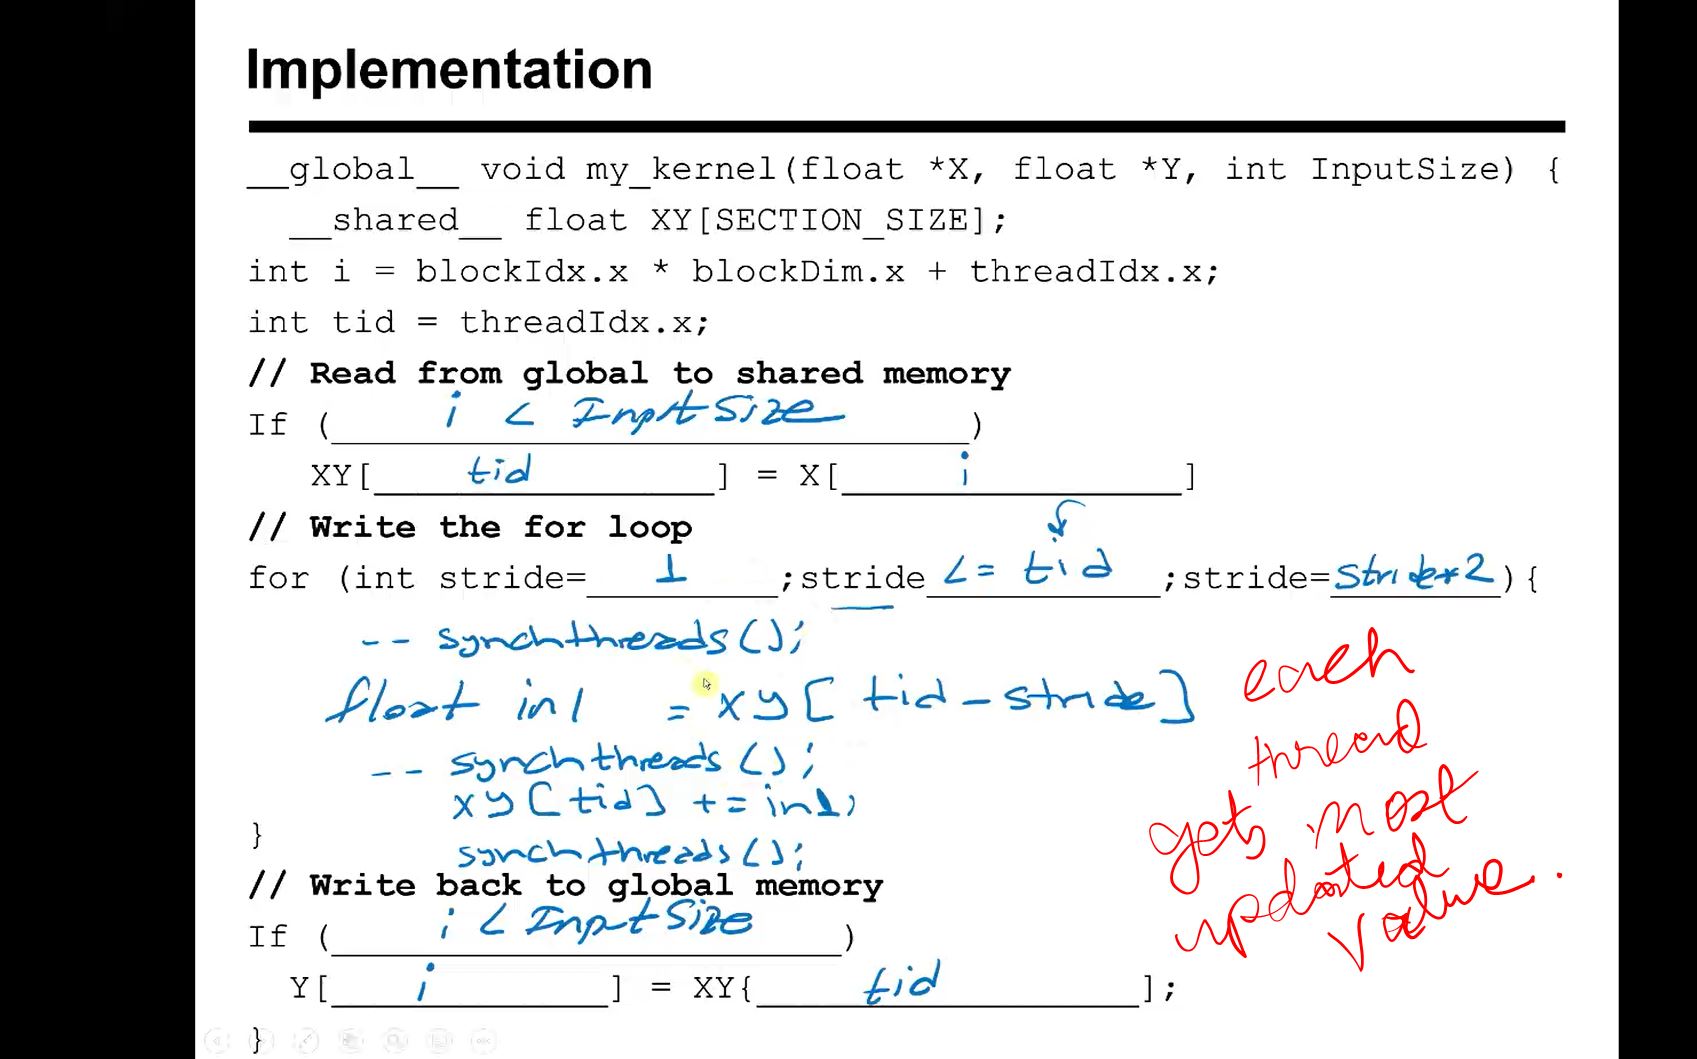 Implementation
__global__ void my_kernel(float *X, float *Y, int InputSize) {
__shared__ float XY[SECTION_SIZE];
int i = blockIdx.x * blockDim.x + threadIdx.x;
int tid = threadIdx.x;
// Read from global to shared memory
If ( i < InputSize )
XY[ tid ] = X[ i ]
// Write the for loop
for (int stride= 1 ;stride <= tid ;stride=stride*2){
-- synchthreads();
float in1 = xy[ tid - stride]
-- synchthreads();
xy[tid] += in1;
}
synchthreads();
each
thread
gets most
updated
value.
// Write back to global memory
If ( i < InputSize )
Y[ i ] = XY{ tid ];
}